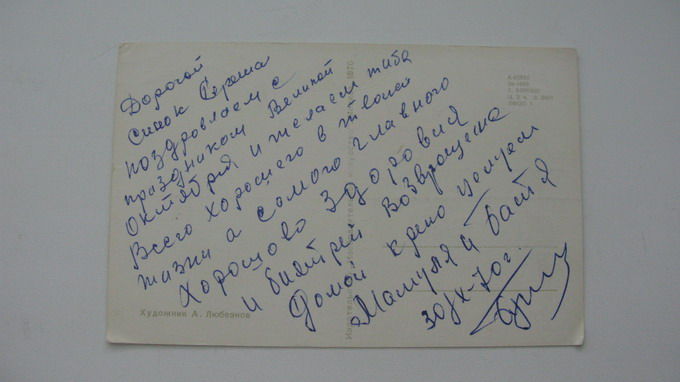 Дорогой
Синок Сергша
поздровляем с
праздником Великой
Октября и желаем тиба
Всего хорошего в твоей
жизни а самого главного
Хорошово здоровия
и бистрей возвращета
Домой крепо целуем
Мамуля и Батя
30/X-70г.
Художник А. Любезнов
1970